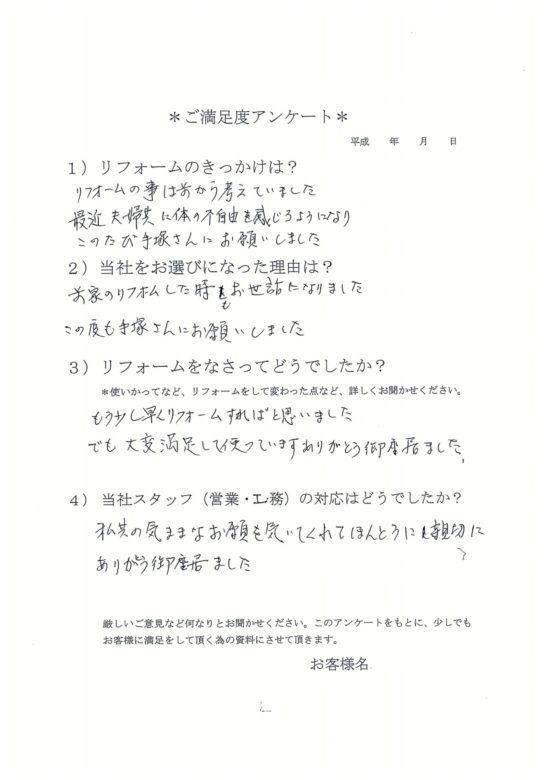 ＊ご満足度アンケート＊
平成　年　月　日
１）リフォームのきっかけは？
リフォームの事は前から考えていました
最近夫婦共に体の不自由を感じるようになり
このたび手塚さんにお願いしました
２）当社をお選びになった理由は？
前家のリフォムした時もお世話になりました
この度も手塚さんにお願いしました
３）リフォームをなさってどうでしたか？
＊使いかってなど、リフォームをして変わった点など、詳しくお聞かせください。
もう少し早くリフォームすればと思いました
でも大変満足して使っていますありがとう御座居ました
４）当社スタッフ（営業・工務）の対応はどうでしたか？
私共の気ままなお願を気いてくれてほんとうに親切に
ありがとう御座居ました
厳しいご意見など何なりとお聞かせください。このアンケートをもとに、少しでも
お客様に満足をして頂く為の資料にさせて頂きます。
お客様名